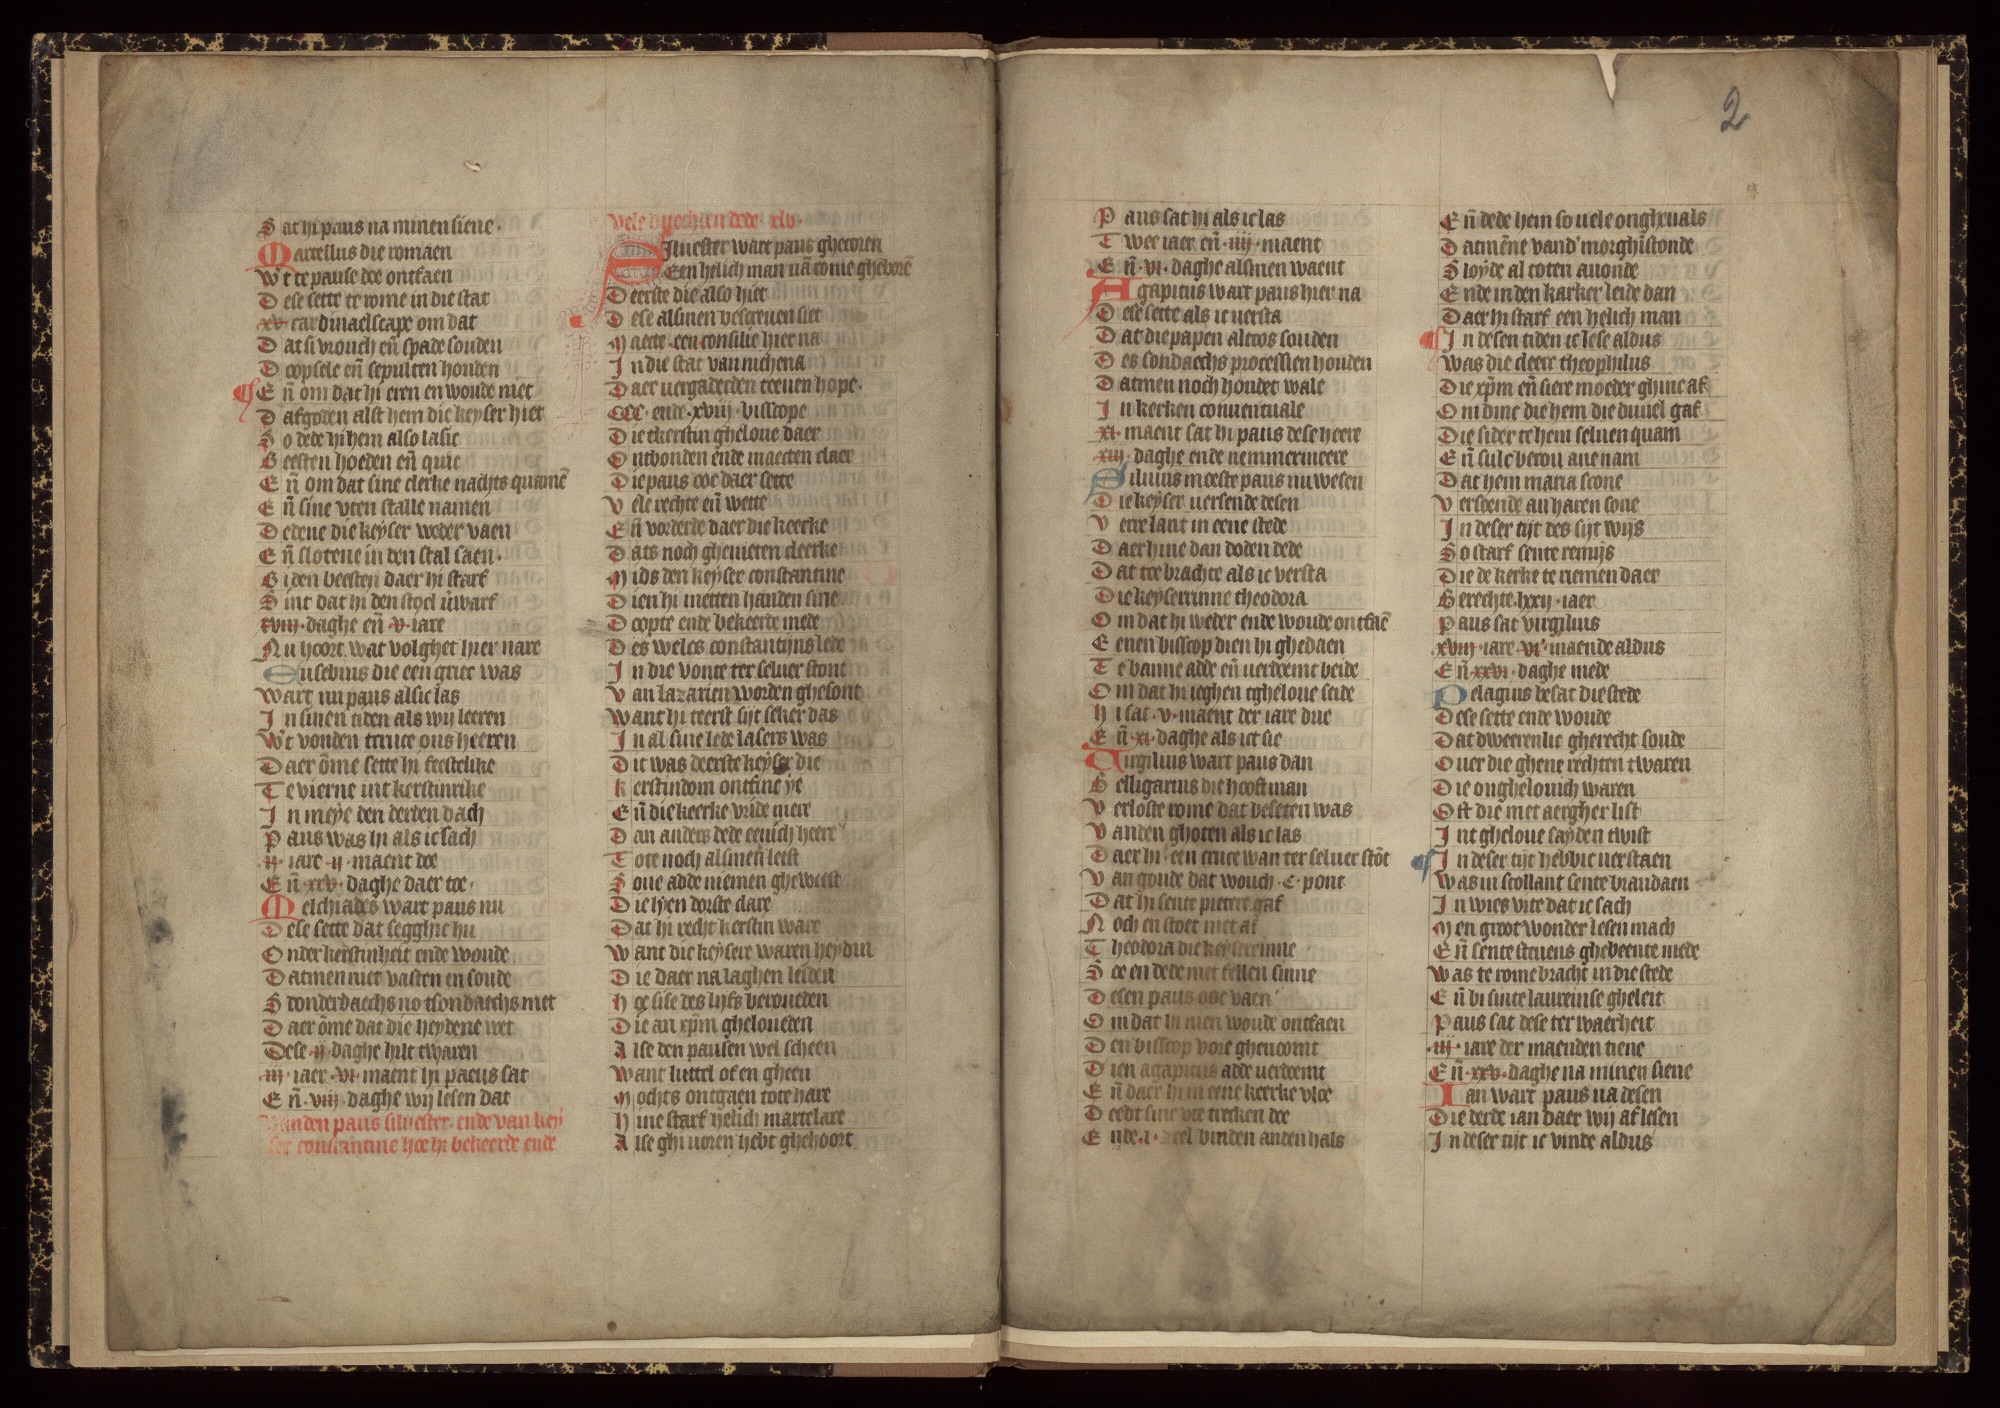 S at hi paus na minen siene.
Marcellus die romaen
Wt te pause doe ontfaen
D ese sette te rome in die stat
xv cardinaelscape om dat
D at si vrouch en̄ spade souden
D oopsele en̄ sepulten houden
E n̄ om dat hi eren en woude niet
D afgoden alst hem die keyser hiet
S o dede hi hem also lasic
B eesten hoeden en̄ quic
E n̄ om dat sine clerke nachts quamē
E n̄ sine vten stalle namen
D edene die keyser weder vaen
E n̄ slotene in den stal saen.
B i den beesten daer hi starf
S int dat hi den stoel v̄warf
xviij. daghe en̄ .v. iare
N u hoort wat volghet hier nare
Eusebius die een griec was
Wart nu paus als ic las
I n sinen tiden als wij leeren
Wt vonden tcruce ons heeren
D aer ōme sette hi feestelike
T e vierne int kerstinrike
I n meye den derden dach
P aus was hi als ic sach
ij. iare .ij. maent doe
E n̄ .xxv. daghe daer toe.
Melchiades wart paus nu
D ese sette dat segghic hu
O nder kerstinheit ende woude
D atmen niet vasten en soude
S donderdaechs no tsondaechs met
D aer ōme dat die heydene wet
Dese .ij. daghe hilt twaren
.iij. iaer .vi. maent hi paeus sat
E n̄ .viij. daghe wij lesen dat
Vanden paus siluester ende van key
ser constantine hoe hi bekeerde ende
vele duechten dede. xlv.
Siluester wart paus ghecoren
Een helich man uā rome gheborē
D eerste die also hiet
D ese alsmen bescreuen siet
M aecte een consilie hier na
I n die stat van nichena
D aer vergaderden teeuen hope.
CCC. ende .xviij. bisscope
D ie tkerstin gheloue daer
O ntbonden ende maecten claer
D ie paus ooc daer sette
V ele rechte en̄ wette
E n̄ vorderde daer die keerke
D ats noch ghenieten cleerke
M ids den keyser constantine
D ien hi metten handen sine
D oopte ende bekeerde mede
D es weles constantijns lede
I n die vonte ter seluer stont
V an lazarien worden ghesont
Want hi teerst sijt seker das
I n al sine lede lasers was
D it was deerste keyser die
K erstindom ontfinc ye
E n̄ die keerke vride mere
D an anders dede eenich heere
T ote noch alsmen leest
S oue adde niemen gheweest
D ie hem dorste clare
D at hi recht kerstin ware
W ant die keysere waren heydin
D ie daer na laghen leiden
H oe sise des lijfs beroueden
D ie an xp̄m gheloueden
A lse den pausen wel scheen
Want luttel of en gheen
M ochts ontgaen tote hare
H ine starf helich martelare
A lse ghi uoren hebt ghehoort
2
P aus sat hi als ic las
T wee iaer en̄ .iiij. maent
E n̄ .vi. daghe alsmen waent
Agapitus wart paus hier na
D ese sette als ic uersta
D at die papen altoos souden
D es sondaechs processien houden
D atmen noch houdet wale
I n kerken conuentuale
xi. maent sat hi paus dese heere
xiij. daghe ende nemmermeere
Siluius moeste paus nu wesen
D ie keyser uersende desen
V erre lant in eene stede
D aer hine dan doden dede
D at toe brachte als ic versta
D ie keyserrinne theodora
O m dat hi weder ende woude ontfaē
E enen bisscop dien hi ghedaen
T e banne adde en̄ uerdoemt beide
O m dat hi ieghen tgheloue seide
H i sat .v. maent der iare drie
E n̄ .xi. daghe als ict sie
Uirgilius wart paus dan
B elligarius die hooftman
V erloste rome dat beseten was
V anden ghoten als ic las
D aer hi een cruce wan ter seluer stōt
V an goude dat wouch .C. pont
D at hi sente pietere gaf
N och en stoet niet af
T heodora die keyserinne
S oe en dede met fellen sinne
D esen paus ooc vaen
O m dat hi nien woude ontfaen
D en bisscop vore ghenoomt
D ien agapitus adde uerdoemt
E n̄ daer hi in eene keerke vloe
D eedt sine vte trecken doe
E nde .i. zeel binden anden hals
E n̄ dede hem so uele ongheuals
D atmēne vand' morghīstonde
S loyde al toten auonde
E nde inden karker leide dan
D aer hi starf een helich man
I n desen tiden ic lese aldus
Was die cleerc theophilus
D ie xp̄m en̄ siere moeder ghinc af
O m dinc die hem die duuel gaf
D ie sider te hem seluen quam
E n̄ sulc berou ane nam
D at hem maria scone
V ersoende an haren sone
I n deser tijt des sijt wijs
S o starf sente remijs
D ie de kerke te riemen daer
B erechte .lxxij. iaer
P aus sat virgilius
xviij. iare .vi. maende aldus
E n̄ .xxvi. daghe mede
Pelagius besat die stede
D ese sette ende woude
D at dweerenlic gherecht soude
O uer die ghene rechten twaren
D ie onghelouich waren
O ft die met aergher list
I nt gheloue sayden twist
I n deser tijt hebbic uerstaen
Was in scollant sente brandaen
I n wies vite dat ic sach
M en groot wonder lesen mach
E n̄ sente steuens ghebeente mede
W as te rome bracht in die stede
E n̄ bi sinte laureinse gheleit
P aus sat dese ter waerheit
.iij. iare der maenden tiene
E n̄ .xxv. daghe na minen siene
Ian wart paus na desen
D ie derde ian daer wij af lesen
I n deser tijt ic vinde aldus